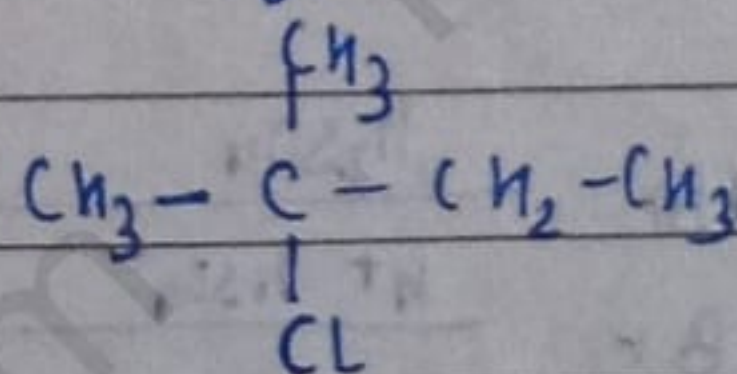 CH3
CH3 - C - CH2 - CH3
CL